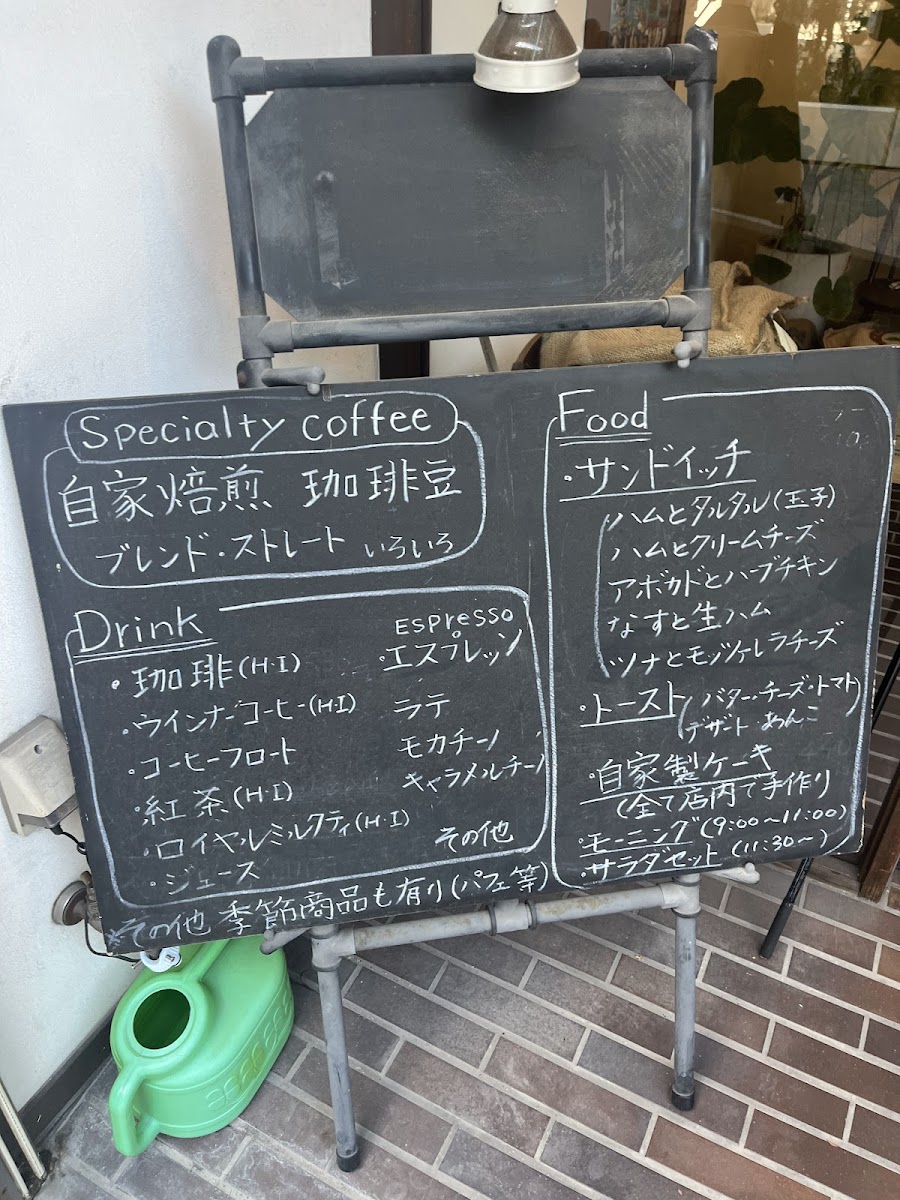 Specialty coffee
自家焙煎 珈琲豆
ブレンド・ストレート いろいろ
Drink
・珈琲(H・I)
・ウインナーコーヒー(H・I)
・コーヒーフロート
・紅茶(H・I)
・ロイヤルミルクティ(H・I)
・ジュース
Espresso
・エスプレッソ
ラテ
モカチーノ
キャラメルチーノ
その他
※その他 季節商品も有り(パフェ等)
Food
・サンドイッチ
ハムとタルタル(玉子)
ハムとクリームチーズ
アボカドとハーブチキン
なすと生ハム
ツナとモッツァレラチーズ
・トースト(バター・チーズ・トマト)
デザート・あんこ
・自家製ケーキ
(全て店内で手作り
・モーニング(9:00〜11:00)
・サラダセット(11:30〜)